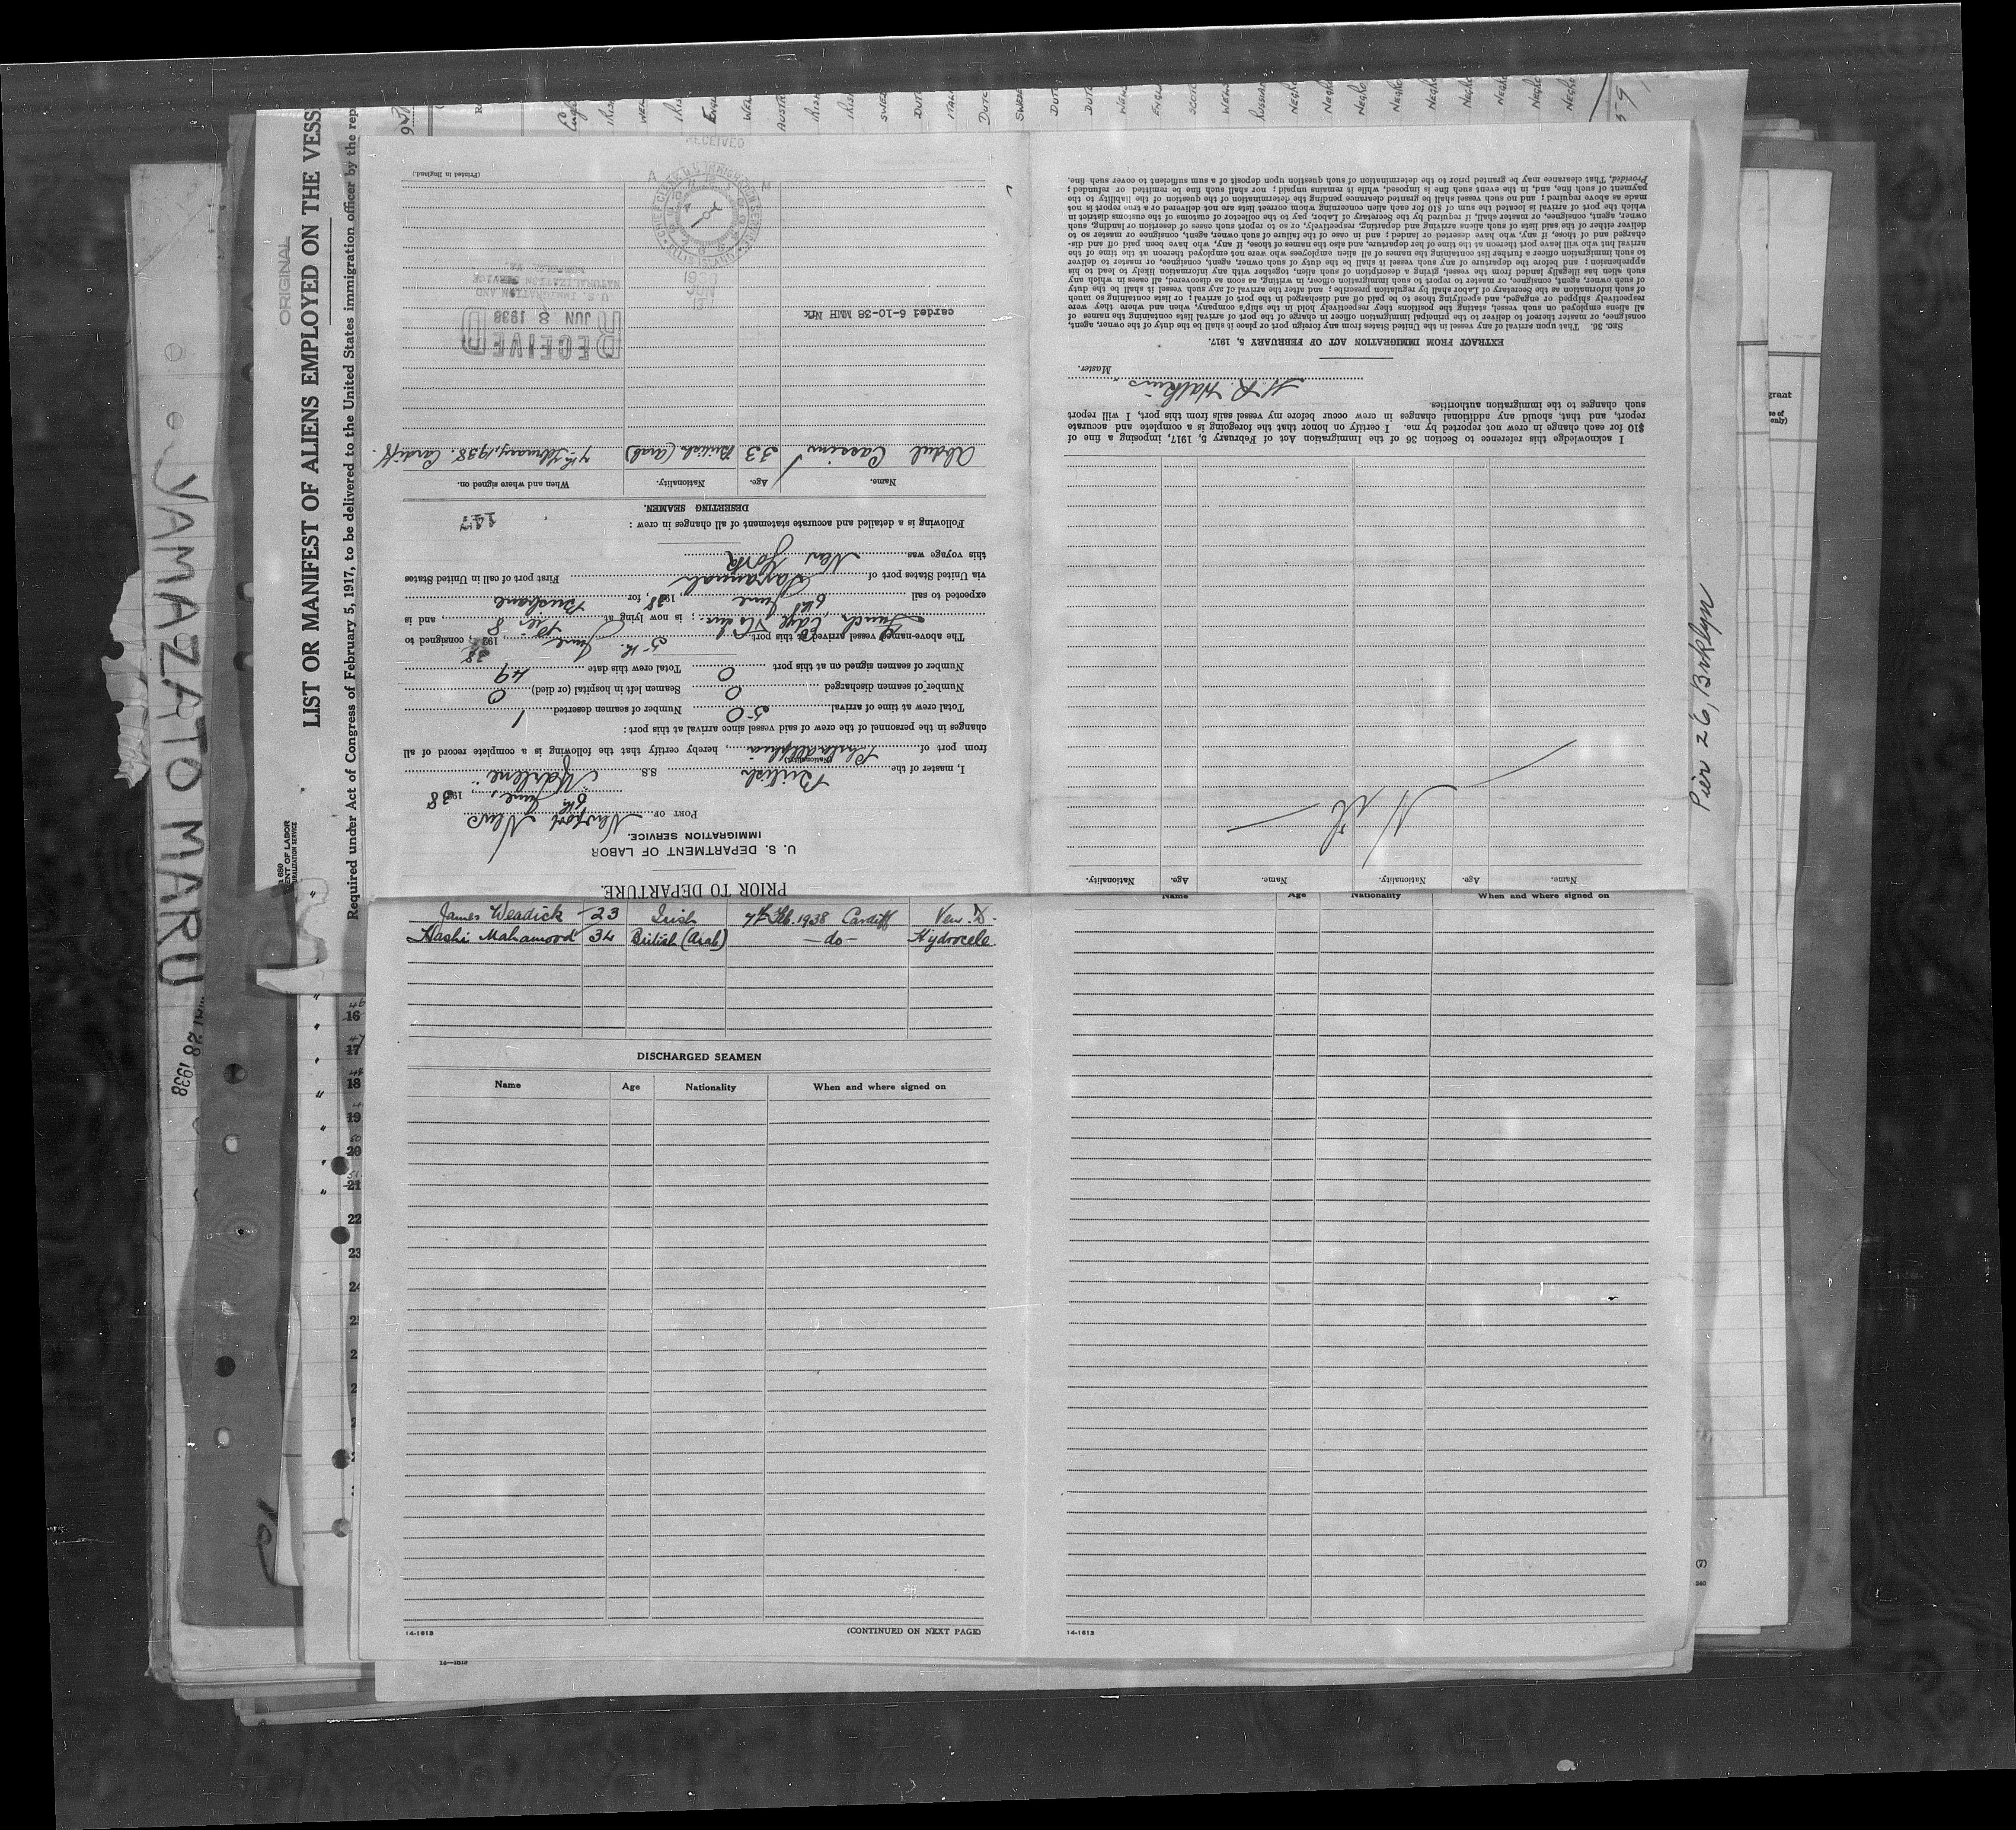 YAMAZATO MARU
28 1938
ORIGINAL
LIST OR MANIFEST OF ALIENS EMPLOYED ON THE VESS
Required under Act of Congress of February 5, 1917, to be delivered to the United States immigration officer by the rep
PRIOR TO DEPARTURE.
U. S. DEPARTMENT OF LABOR
IMMIGRATION SERVICE.
PORT OF Newport News
6th June, 1938
I, master of the British S.S. Marlene
(Nationality)
from port of Philadelphia, hereby certify that the following is a complete record of all
changes in the personnel of the crew of said vessel since arrival at this port:
Total crew at time of arrival 50 Number of seamen deserted 1
Number of seamen discharged 0 Seamen left in hospital (or died) 0
Number of seamen signed on at this port 0 Total crew this date 49
The above-named vessel arrived at this port 5th June 1938, consigned to
; is now lying at Pier 8, and is
expected to sail 6th June, 1938, for Brisbane
via United States port of Savannah First port of call in United States
this voyage was New York
Following is a detailed and accurate statement of all changes in crew:
147
DESERTING SEAMEN.
Name. Age. Nationality. When and where signed on.
Abdul Cassim 33 British (Arab) 7th February, 1938. Cardiff.
RECEIVED
JUN 8 1938
U. S. IMMIGRATION AND
NATURALIZATION SERVICE
carded 6-10-38 MWH Nfk
(Printed in England.)
RECEIVED
Name. Age. Nationality. Name. Age. Nationality.
Nil
I acknowledge this reference to Section 36 of the Immigration Act of February 5, 1917, imposing a fine of
$10 for each change in crew not reported by me. I certify on honor that the foregoing is a complete and accurate
report, and that, should any additional changes in crew occur before my vessel sails from this port, I will report
such changes to the immigration authorities.
Master.
EXTRACT FROM IMMIGRATION ACT OF FEBRUARY 5, 1917.
SEC. 36. That upon arrival of any vessel in the United States from any foreign port or place it shall be the duty of the owner, agent,
consignee, or master thereof to deliver to the principal immigration officer in charge of the port of arrival lists containing the names of
all aliens employed on such vessel, stating the positions they respectively hold in the ship's company, when and where they were
respectively shipped or engaged, and specifying those to be paid off and discharged in the port of arrival; or lists containing so much
of such information as the Secretary of Labor shall by regulation prescribe; and after the arrival of any such vessel it shall be the duty
of such owner, agent, consignee, or master to report to such immigration officer, in writing, as soon as discovered, all cases in which any
such alien has illegally landed from the vessel, giving a description of such alien, together with any information likely to lead to his
apprehension; and before the departure of any such vessel it shall be the duty of such owner, agent, consignee, or master to deliver
to such immigration officer a further list containing the names of all alien employees who were not employed thereon at the time of the
arrival but who will leave port thereon at the time of her departure, and also the names of those, if any, who have been paid off and dis-
charged and of those, if any, who have deserted or landed; and in case of the failure of such owner, agent, consignee or master so to
deliver either of the said lists of such aliens arriving and departing, respectively, or so to report such cases of desertion or landing, such
owner, agent, consignee, or master shall, if required by the Secretary of Labor, pay to the collector of customs of the customs district in
which the port of arrival is located the sum of $10 for each alien concerning whom correct lists are not delivered or a true report is not
made as above required; and no such vessel shall be granted clearance pending the determination of the question of the liability to the
payment of such fine, and, in the event such fine is imposed, while it remains unpaid; nor shall such fine be remitted or refunded;
Provided, That clearance may be granted prior to the determination of such question upon deposit of a sum sufficient to cover such fine.
Pier 26, Brklyn
James Weadick 23 Irish 7th Feb. 1938 Cardiff Ven. D.
Hashi Mahamood 34 British (Arab) — do — Hydrocele.
DISCHARGED SEAMEN
Name Age Nationality When and where signed on
14-1613
(CONTINUED ON NEXT PAGE)
Name Age Nationality When and where signed on
14-1613
16
17
18
19
20
21
22
23